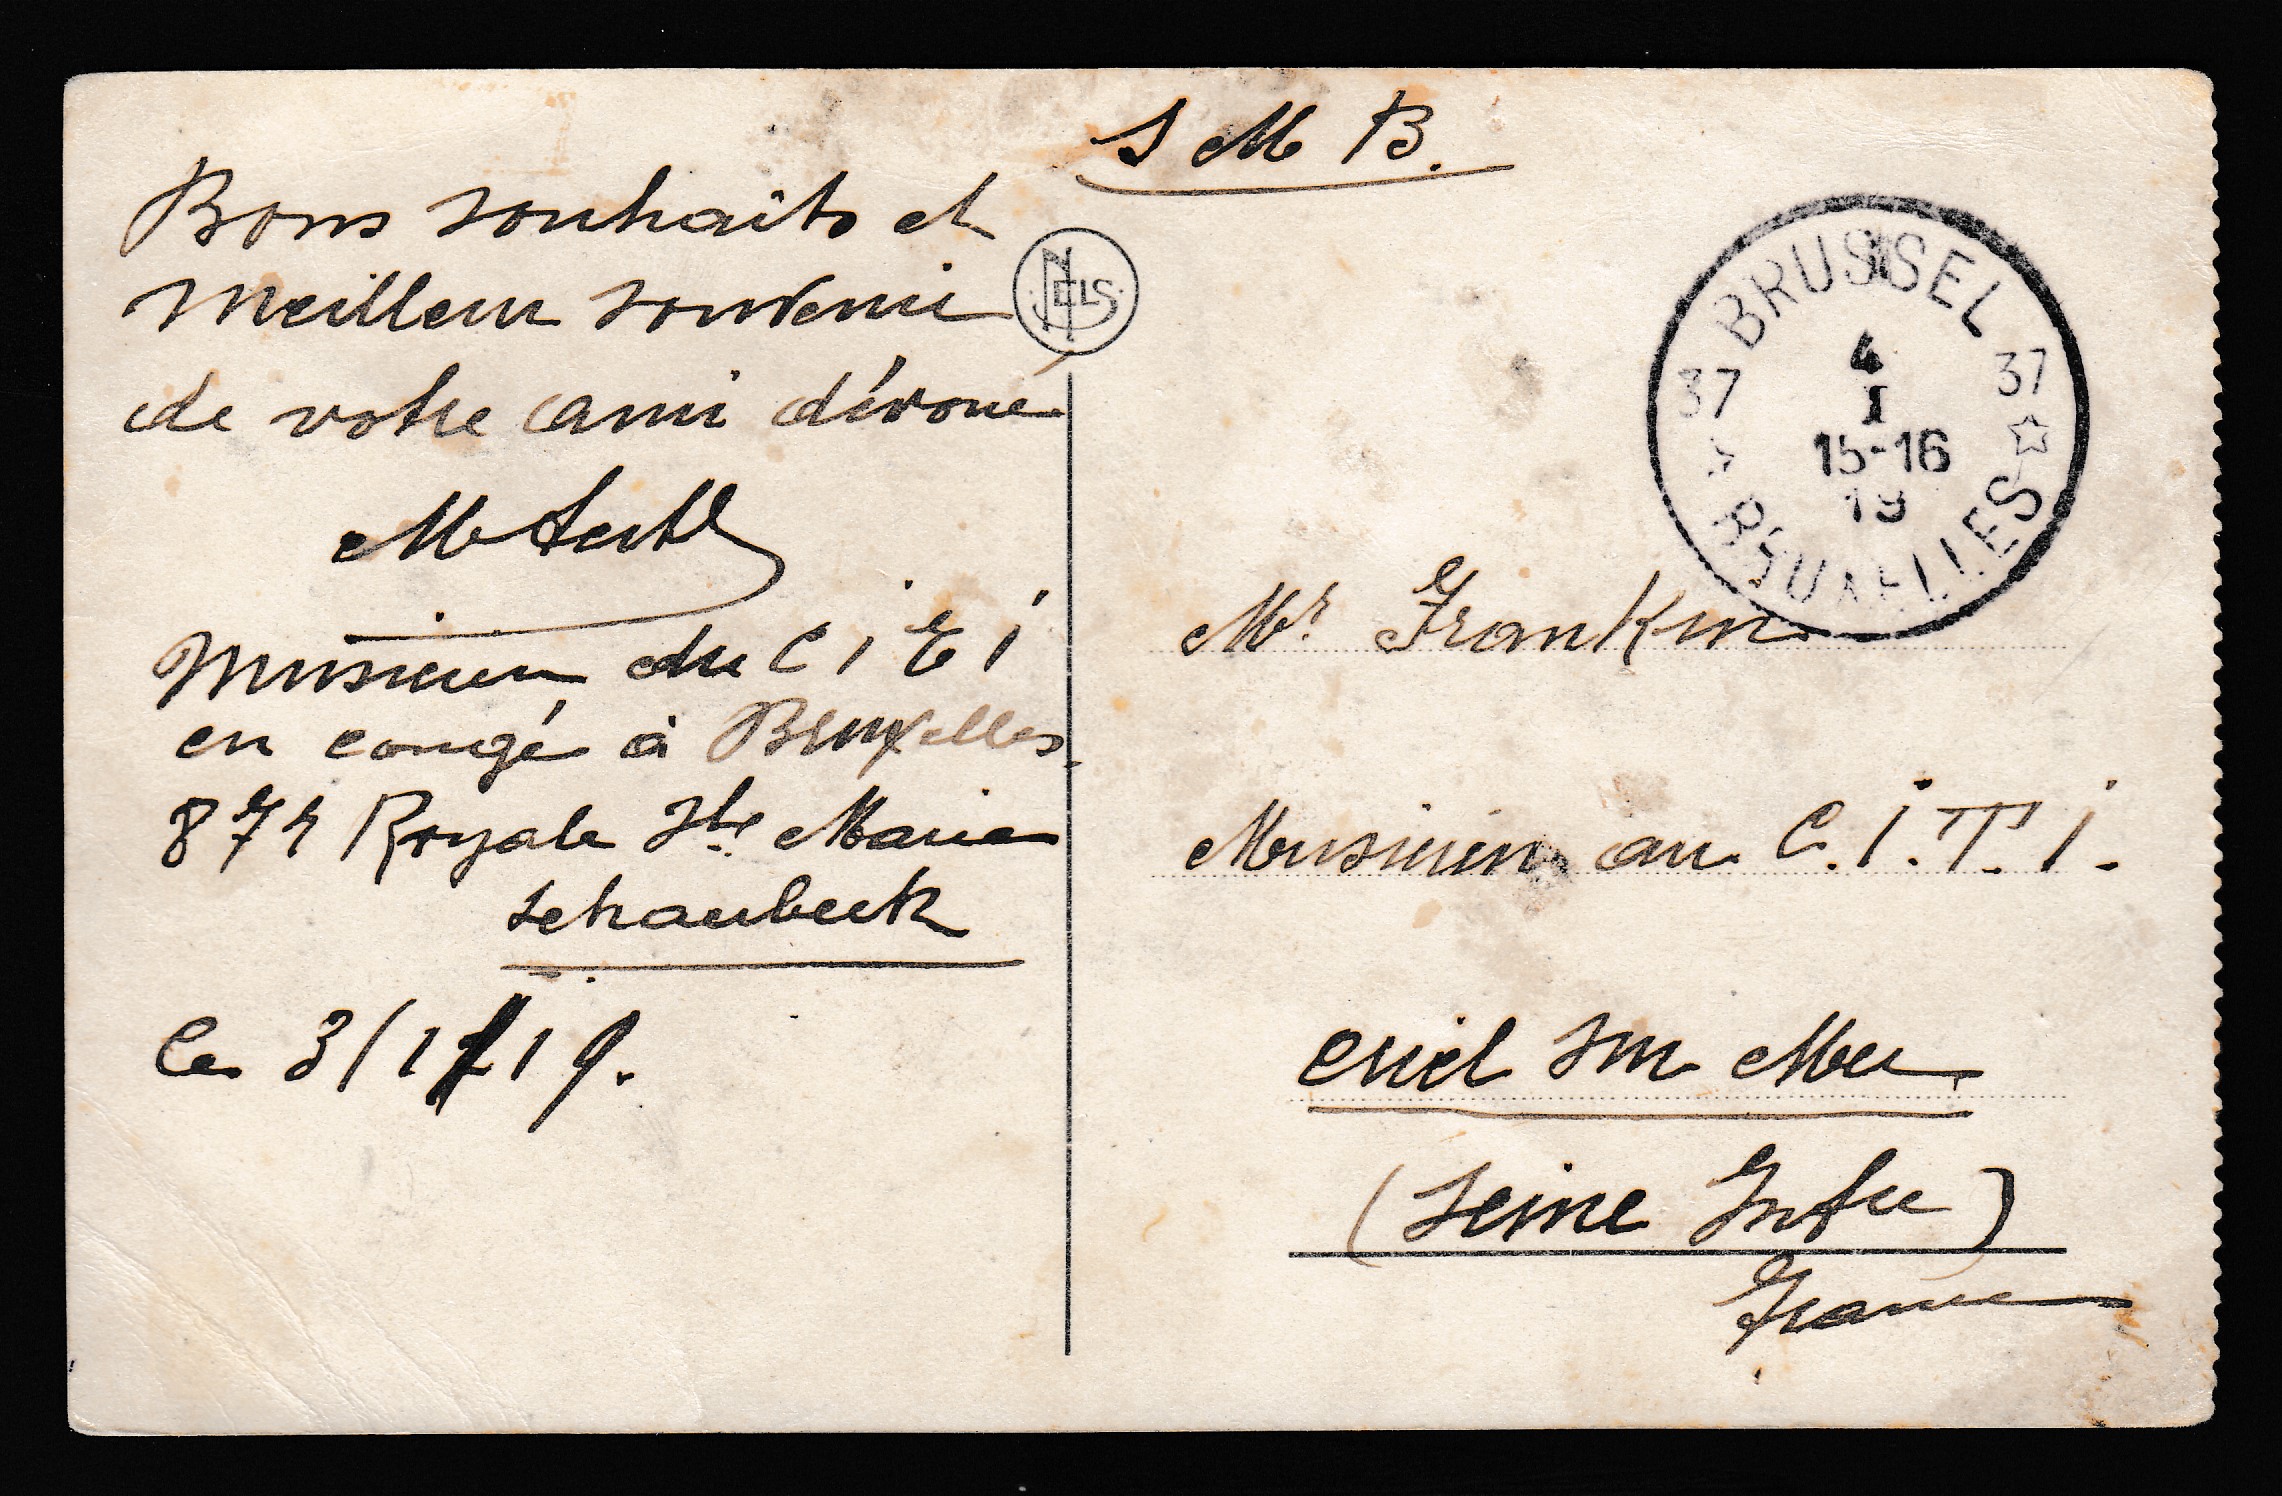 S M B.
Bons souhaits et
meilleur souvenir
de votre ami dévoué
NELS
Musicien du C I E I
en congé à Bruxelles
Royale Ste Marie
Schaerbeek
le 3/1/19.
BRUSSEL
37 37
4
I
15-16
19
BRUXELLES
Mr. Frankin
Musicien au C.I.T.I.
criel sur Mer
(Seine Infre)
France